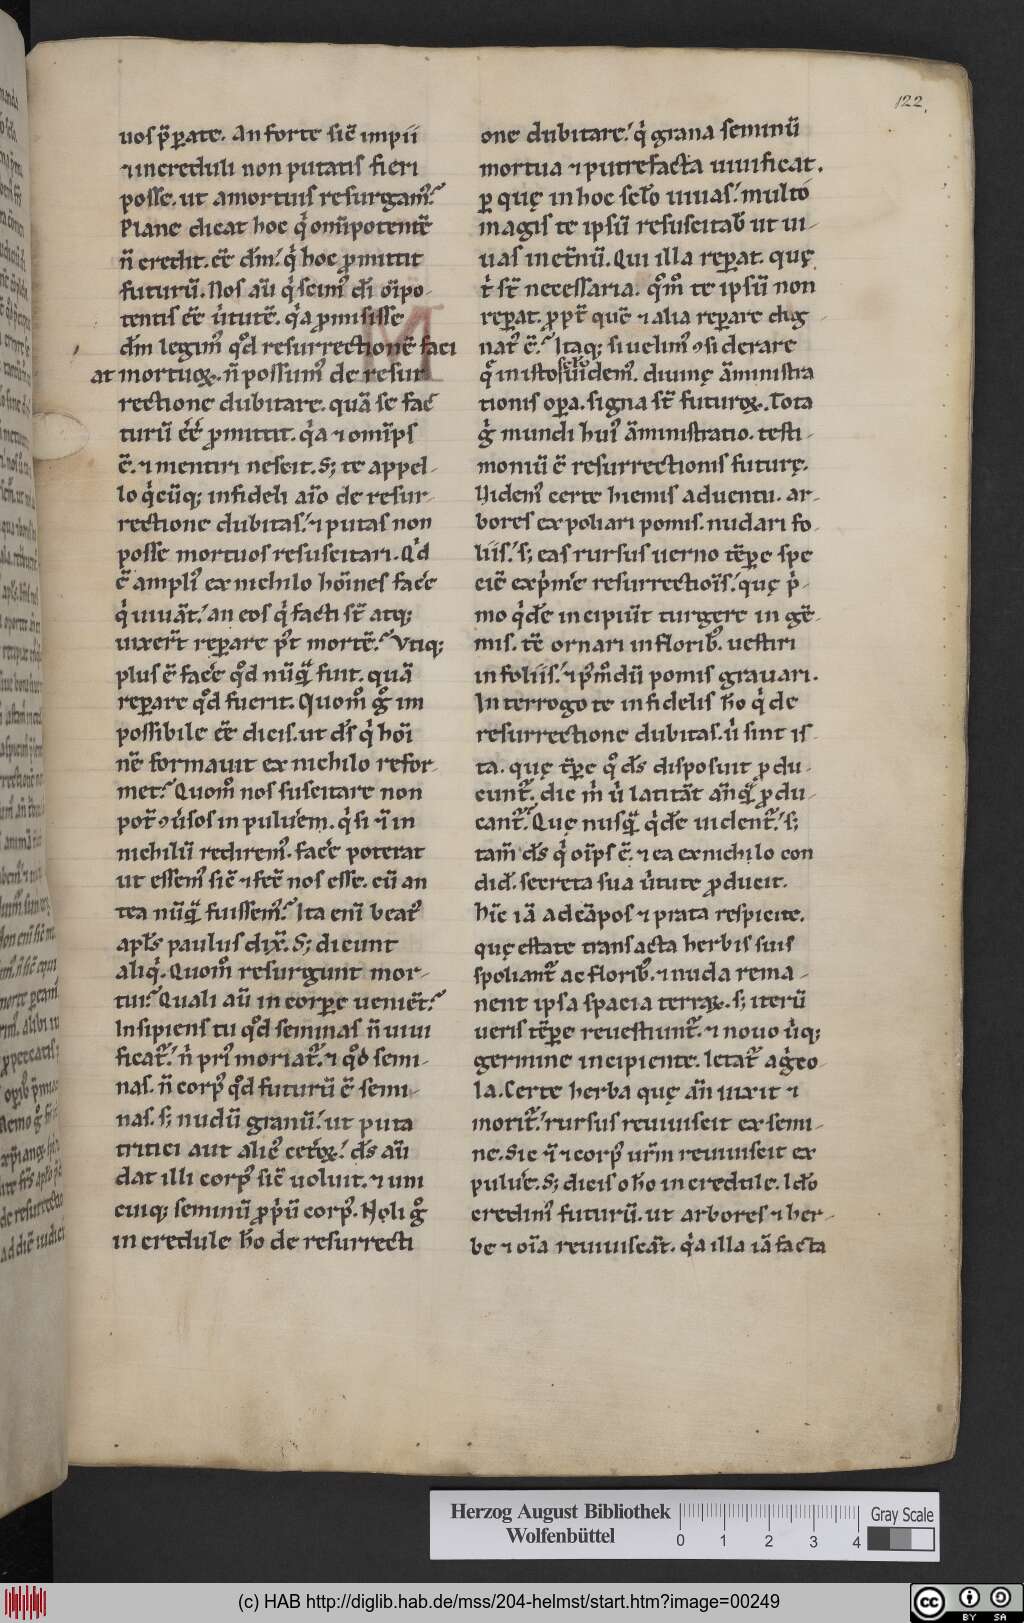 122.
uos p̄parate. An forte sic̄ impii
⁊ increduli non putatis fieri
posse. ut a mortuis resurgam᷒?
Plane dicat hoc q̇ om̄ipotentē
n̄ credit. eē dm̄. q̇ hoc promittit
futurū. Nos aū q̇ scim᷒ dn̄ oīpo-
tentis eē u̇tutē. q̇a promisisse
dm̄ legim᷒ qd̊ resurrectionē faci
at mortuoꝝ. n̄ possum᷒ de resur
rectione dubitare. quā se fac̄
turū eē promittit. q̇a ⁊ omīps
ē. ⁊ mentiri nescit. S; te appel-
lo q̇cūq; infideli aīo de resur-
rectione dubitas. ⁊ putas non
posse mortuos resuscitari. Qḋ
ē ampli᷒ ex nichilo hoīnes facē
q̇ uiuāt. an eos q̇ facti st̄ atq;
uixer̄t reparare p᷒t mortē? Vtiq;
plus ē facē qd̊ nūqā fuit. quā
reparare qd̊ fuerit. Quom̊ g̊ im
possibile eē dicis. ut ds̄ q̇ hoī
nē formauit ex nichilo refor-
met? Quom̊ nos suscitare non
pot̄ ꝯu̇sos in puluerem. q̇ si ⁊ in
nichilū redirem᷒. facē poterat
ut essem᷒ sic̄ ⁊ fec̄ nos esse. cū an
tea nūqā fuissem᷒? Ita enī beat᷒
apls̄ paulus dix̄. S; dicunt
aliq̇. Quom̊ resurgunt mor-
tui? Quali aū in corpore ueniēt?
Insipiens tu qd̊ seminas n̄ uiui
ficat᷑. n̄ pri᷒ moriat᷑. ⁊ qd̊ semi-
nas. n̄ corp᷒ qd̊ futurū ē semi-
nas. s; nudū granū. ut puta
tritici aut alic᷒ cet̄oꝝ. ds̄ aū
dat illi corp᷒ sic̄ uoluit. ⁊ uni
cuiq; seminū propriū corp᷒. Noli g̊
incredule ho̅ de resurrecti
one dubitare. q̇ grana seminū
mortua ⁊ putrefacta uiuificat.
p̱ quę in hoc sclo̅ uiuas. multo
magis te ipsū resuscitab̄ ut ui-
uas in et̄nū. Qui illa reparat. quę
t̄ st̄ necessaria. qm̊ te ipsū non
reparat. propt̄ quē ⁊ alia reparare dig
nat᷑ ē? Itaq; si uelim᷒ ꝯsiderare
q̄ in isto sclo̅ uidem᷒. diuinę āministra
tionis opera. signa st̄ futuroꝝ. Tota
g̊ mundi hui᷒ āministratio. testi-
moniū ē resurrectionis futurę.
Videm᷒ certe hiemis aduentu. ar-
bores expoliari pomis. nudari fo-
liis. s; eas rursus uerno tēpore spe
ciē exprimē resurrectiois. quę p̄-
mo q̇dē incipiūt turgere in gē-
mis. tē ornari in florib᷒. uestiri
in foliis. ⁊ p᷒m̊dū pomis grauari.
Interrogo te infidelis ho̅ q̇ de
resurrectione dubitas. u̇ sint is-
ta. quę tēpore q̊ ds̄ disposuit produ-
cunt᷑. dic m̄ u̇ latitāt an̄qā produ-
cant᷑. Quę nusqā q̇dē uident᷑. s;
tam̄ ds̄ q̇ oīps ē. ⁊ ea ex nichilo con
did̄. secreta sua u̇tute producit.
Hīc iā ad cāpos ⁊ prata respicite.
quę estate transacta herbis suis
spoliant᷑ ac florib᷒. ⁊ nuda rema-
nent ipsa spacia terraꝝ. s; iterū
ueris tēpore reuestiunt᷑. ⁊ nouo u̇q;
germine incipiente. letat᷑ ag̊co-
la. Certe herba quę an̄ uixit ⁊
morit᷑. rursus reuiuiscit ex semi-
ne. Sic ⁊ corp᷒ nr̄m reuiuiscit ex
puluē. S; dicis o ho̅ incredule. Idō
credim᷒ futurū. ut arbores ⁊ her-
bę ⁊ oīa reuiuiscāt. q̇a illa iā facta
Herzog August Bibliothek
Wolfenbüttel
0 1 2 3 4
Gray Scale
(c) HAB http://diglib.hab.de/mss/204-helmst/start.htm?image=00249
cc BY SA